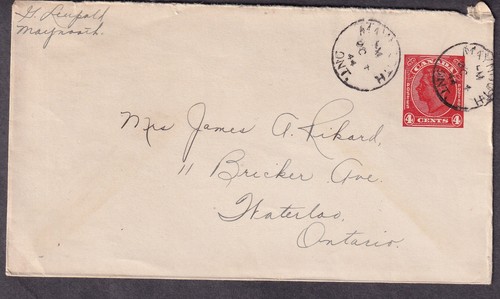 G. Leupold
Maynooth.
MAYNOOTH
PM
OC 4
44
ONT.
CANADA
4 CENTS 4
MAYNOOTH
PM
4
ONT.
Mrs James A. Rikard,
11 Bricker Ave.
Waterloo.
Ontario.